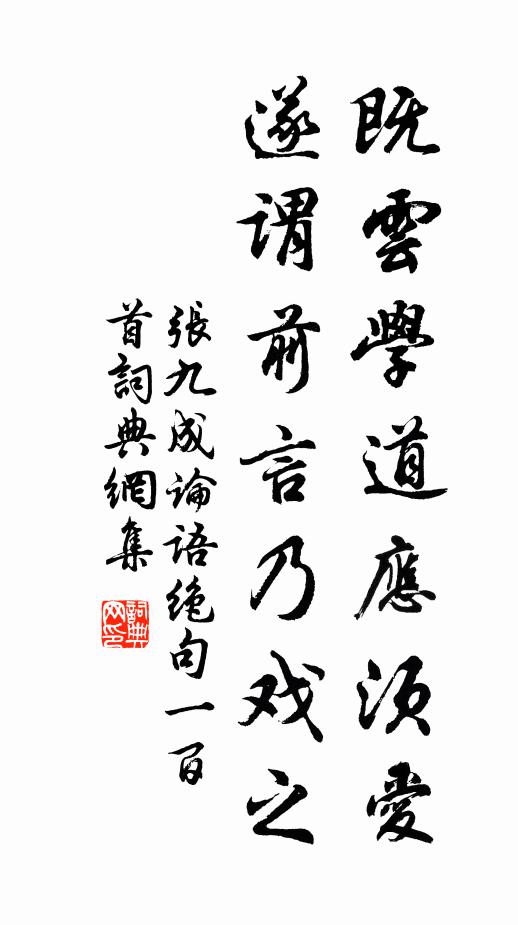 既雲學道應須愛
遂謂前言乃戏之
張九成論語绝句一百
首詞典網集
詞典
网印